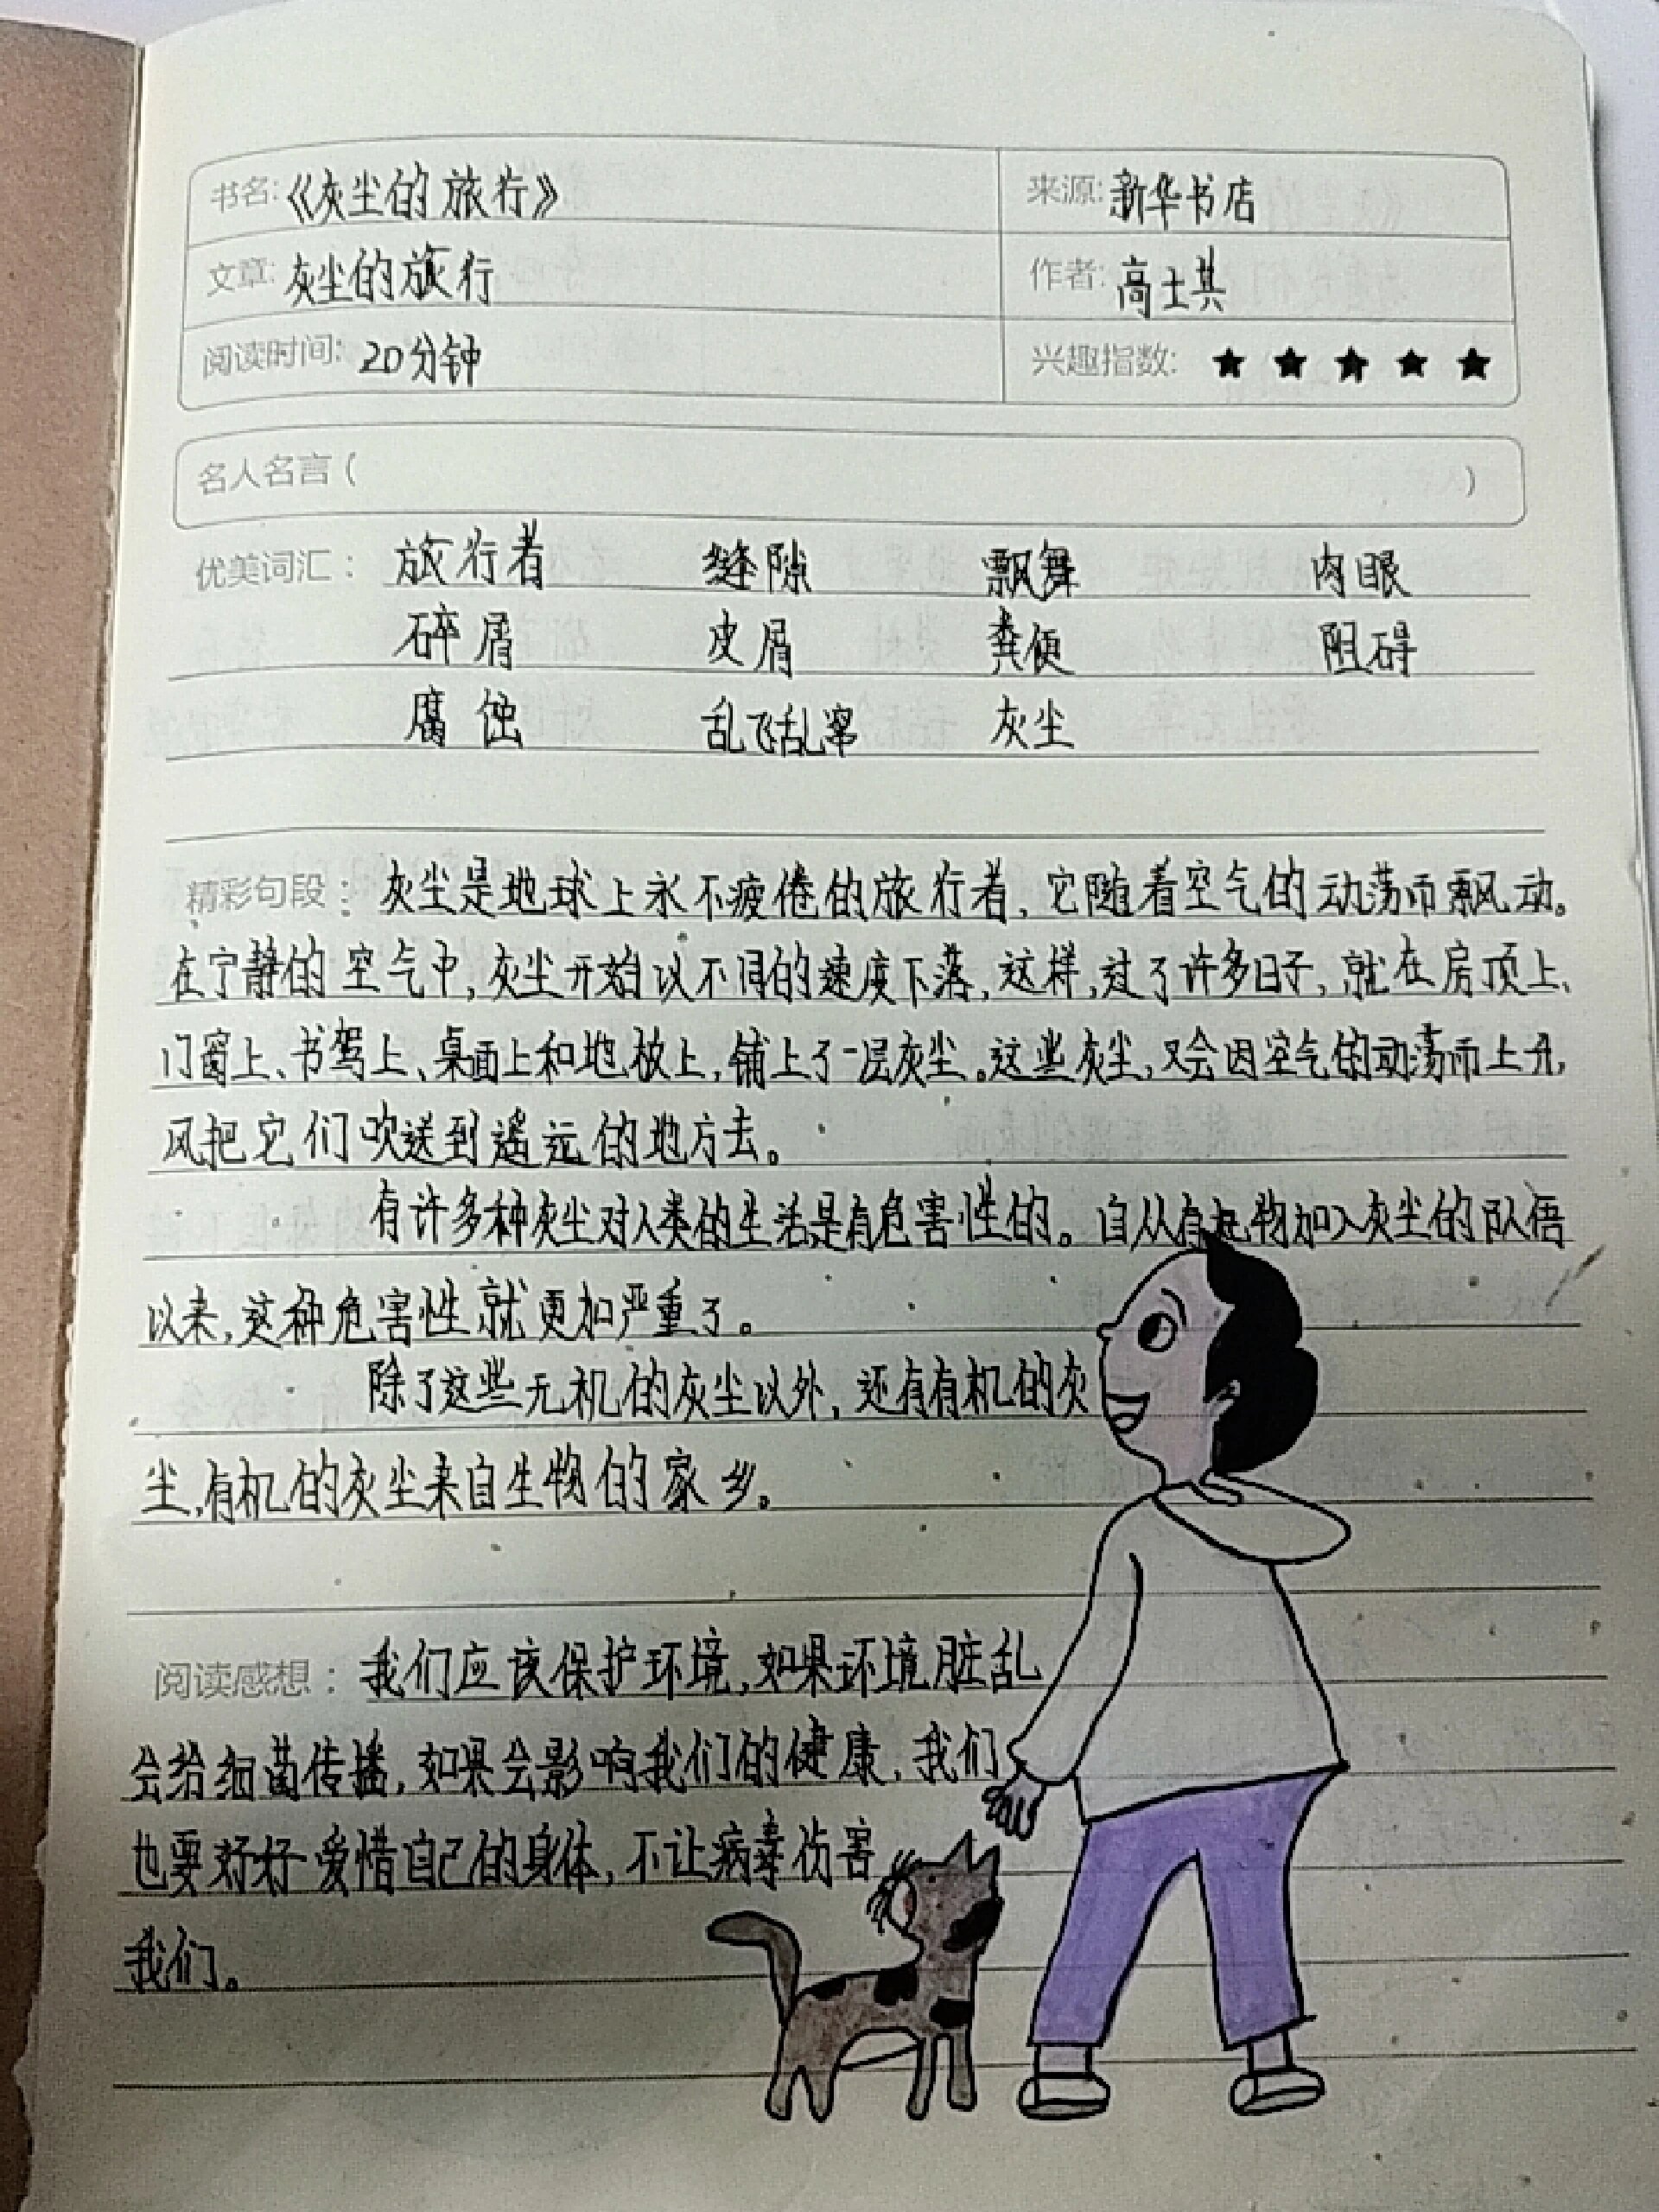 书名:《灰尘的旅行》 来源:新华书店
文章:灰尘的旅行 作者:高士其
阅读时间:20分钟 兴趣指数:★★★★★
名人名言( )
优美词汇: 旅行者 缝隙 飘舞 肉眼
碎屑 皮屑 粪便 阻碍
腐蚀 乱飞乱窜 灰尘
精彩句段: 灰尘是地球上永不疲倦的旅行者,它随着空气的动荡而飘动。
在宁静的空气中,灰尘开始以不同的速度下落,这样,过了许多日子,就在房顶上、
门窗上、书驾上、桌面上和地板上,铺上了一层灰尘。这些灰尘,又会因空气的动荡而上升,
风把它们吹送到遥远的地方去。
有许多种灰尘对人类的生活是有危害性的。自从有机物加入灰尘的队伍
以来,这种危害性就更加严重了。
除了这些无机的灰尘以外,还有有机的灰
尘,有机的灰尘来自生物的家乡。
阅读感想: 我们应该保护环境,如果环境脏乱
会给细菌传播,如果会影响我们的健康,我们
也要好好爱惜自己的身体,不让病毒伤害
我们。